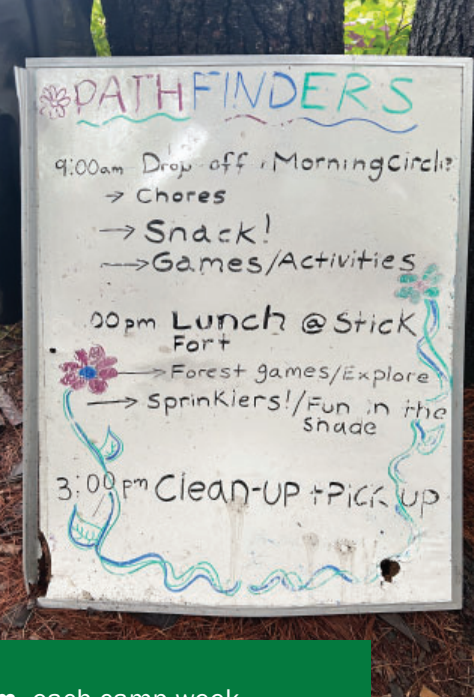 PATHFINDERS
9:00am Drop off, Morning Circle
→ Chores
→ Snack!
→ Games/Activities
00pm Lunch @ Stick
Fort
→ Forest games/Explore
→ Sprinklers!/Fun in the
shade
3:00pm Clean-up + Pick up
each camp week